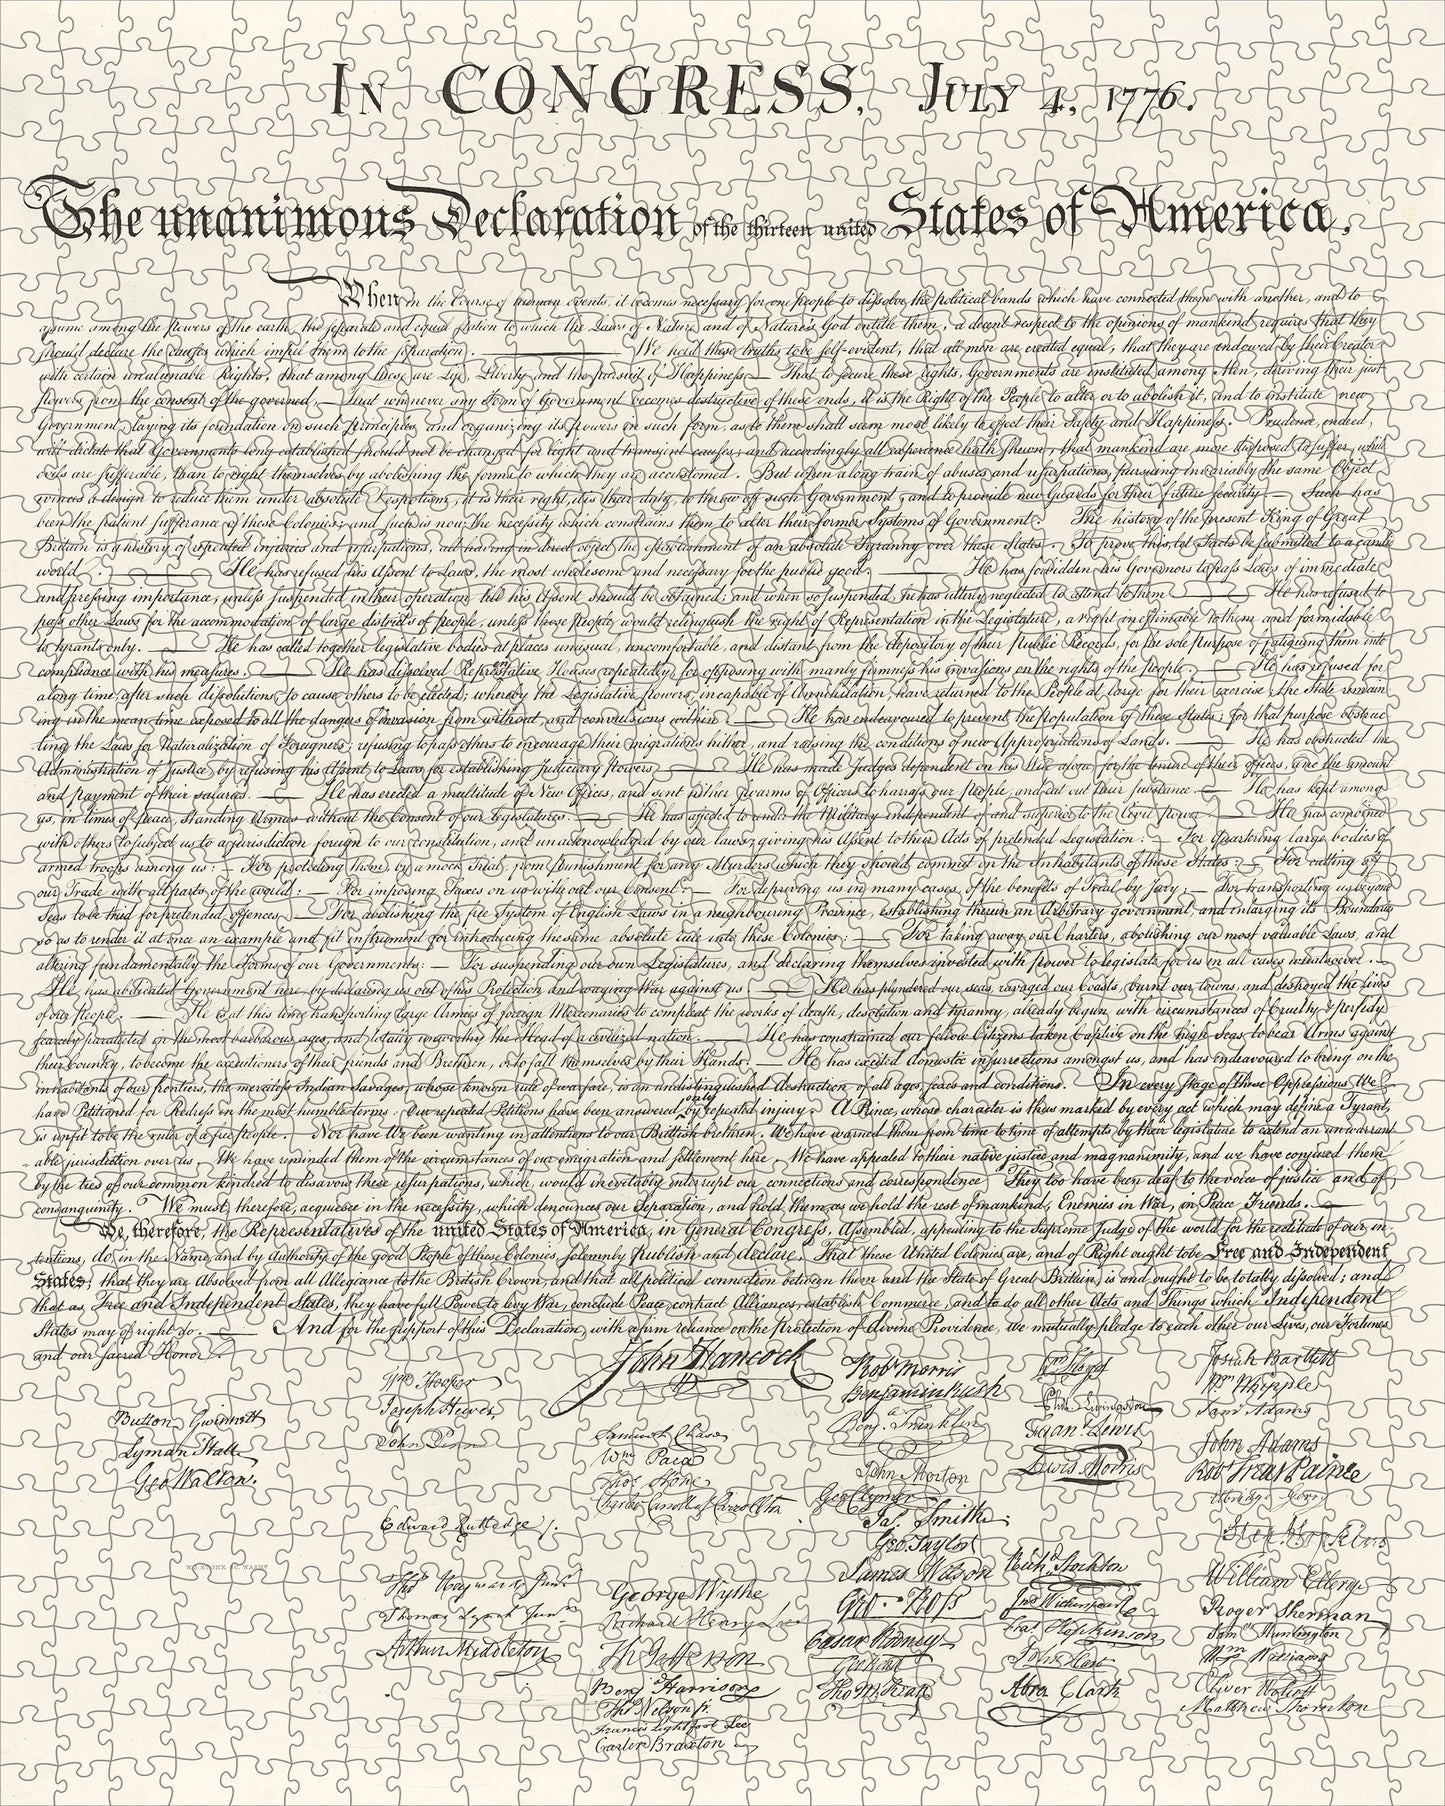 In CONGRESS, July 4, 1776.
The unanimous Declaration of the thirteen united States of America,
When in the Course of human events, it becomes necessary for one people to dissolve the political bands which have connected them with another, and to
assume among the powers of the earth, the separate and equal station to which the Laws of Nature and of Nature's God entitle them, a decent respect to the opinions of mankind requires that they
should declare the causes which impel them to the separation. — We hold these truths to be self-evident, that all men are created equal, that they are endowed by their Creator
with certain unalienable Rights, that among these are Life, Liberty and the pursuit of Happiness.— That to secure these rights, Governments are instituted among Men, deriving their just
powers from the consent of the governed,— That whenever any Form of Government becomes destructive of these ends, it is the Right of the People to alter or to abolish it, and to institute new
Government, laying its foundation on such principles and organizing its powers in such form, as to them shall seem most likely to effect their Safety and Happiness. Prudence, indeed,
will dictate that Governments long established should not be changed for light and transient causes; and accordingly all experience hath shewn, that mankind are more disposed to suffer, while
evils are sufferable, than to right themselves by abolishing the forms to which they are accustomed. But when a long train of abuses and usurpations, pursuing invariably the same Object
evinces a design to reduce them under absolute Despotism, it is their right, it is their duty, to throw off such Government, and to provide new Guards for their future security.— Such has
been the patient sufferance of these Colonies; and such is now the necessity which constrains them to alter their former Systems of Government. The history of the present King of Great
Britain is a history of repeated injuries and usurpations, all having in direct object the establishment of an absolute Tyranny over these States. To prove this, let Facts be submitted to a candid
world. — He has refused his Assent to Laws, the most wholesome and necessary for the public good. — He has forbidden his Governors to pass Laws of immediate
and pressing importance, unless suspended in their operation till his Assent should be obtained; and when so suspended, he has utterly neglected to attend to them. — He has refused to
pass other Laws for the accommodation of large districts of people, unless those people would relinquish the right of Representation in the Legislature, a right inestimable to them and formidable
to tyrants only. — He has called together legislative bodies at places unusual, uncomfortable, and distant from the depository of their Public Records, for the sole purpose of fatiguing them into
compliance with his measures. — He has dissolved Representative Houses repeatedly, for opposing with manly firmness his invasions on the rights of the people. — He has refused for
a long time, after such dissolutions, to cause others to be elected; whereby the Legislative powers, incapable of Annihilation, have returned to the People at large for their exercise; the State remain
ing in the mean time exposed to all the dangers of invasion from without, and convulsions within. — He has endeavoured to prevent the population of these States; for that purpose obstruc
ting the Laws for Naturalization of Foreigners; refusing to pass others to encourage their migrations hither, and raising the conditions of new Appropriations of Lands. — He has obstructed the
Administration of Justice, by refusing his Assent to Laws for establishing Judiciary powers. — He has made Judges dependent on his Will alone, for the tenure of their offices, and the amount
and payment of their salaries. — He has erected a multitude of New Offices, and sent hither swarms of Officers to harrass our people, and eat out their substance. — He has kept among
us, in times of peace, Standing Armies without the Consent of our legislatures. — He has affected to render the Military independent of and superior to the Civil power. — He has combined
with others to subject us to a jurisdiction foreign to our constitution, and unacknowledged by our laws; giving his Assent to their Acts of pretended Legislation: — For Quartering large bodies of
armed troops among us: — For protecting them, by a mock Trial, from punishment for any Murders which they should commit on the Inhabitants of these States: — For cutting off
our Trade with all parts of the world: — For imposing Taxes on us without our Consent: — For depriving us in many cases, of the benefits of Trial by Jury: — For transporting us beyond
Seas to be tried for pretended offences — For abolishing the free System of English Laws in a neighbouring Province, establishing therein an Arbitrary government, and enlarging its Boundaries
so as to render it at once an example and fit instrument for introducing the same absolute rule into these Colonies: — For taking away our Charters, abolishing our most valuable Laws, and
altering fundamentally the Forms of our Governments: — For suspending our own Legislatures, and declaring themselves invested with power to legislate for us in all cases whatsoever. —
He has abdicated Government here, by declaring us out of his Protection and waging War against us. — He has plundered our seas, ravaged our Coasts, burnt our towns, and destroyed the lives
of our people. — He is at this time transporting large Armies of foreign Mercenaries to compleat the works of death, desolation and tyranny, already begun with circumstances of Cruelty & perfidy
scarcely paralleled in the most barbarous ages, and totally unworthy the Head of a civilized nation. — He has constrained our fellow Citizens taken Captive on the high Seas to bear Arms against
their Country, to become the executioners of their friends and Brethren, or to fall themselves by their Hands. — He has excited domestic insurrections amongst us, and has endeavoured to bring on the
inhabitants of our frontiers, the merciless Indian Savages, whose known rule of warfare, is an undistinguished destruction of all ages, sexes and conditions. In every stage of these Oppressions We
have Petitioned for Redress in the most humble terms: Our repeated Petitions have been answered only by repeated injury. A Prince, whose character is thus marked by every act which may define a Tyrant,
is unfit to be the ruler of a free people. Nor have We been wanting in attentions to our Brittish brethren. We have warned them from time to time of attempts by their legislature to extend an unwarrant
able jurisdiction over us. We have reminded them of the circumstances of our emigration and settlement here. We have appealed to their native justice and magnanimity, and we have conjured them
by the ties of our common kindred to disavow these usurpations, which, would inevitably interrupt our connections and correspondence. They too have been deaf to the voice of justice and of
consanguinity. We must, therefore, acquiesce in the necessity, which denounces our Separation, and hold them, as we hold the rest of mankind, Enemies in War, in Peace Friends. —
We, therefore, the Representatives of the united States of America, in General Congress, Assembled, appealing to the Supreme Judge of the world for the rectitude of our in-
tentions, do, in the Name, and by Authority of the good People of these Colonies, solemnly publish and declare, That these United Colonies are, and of Right ought to be Free and Independent
States; that they are Absolved from all Allegiance to the British Crown, and that all political connection between them and the State of Great Britain, is and ought to be totally dissolved; and
that as Free and Independent States, they have full Power to levy War, conclude Peace, contract Alliances, establish Commerce, and to do all other Acts and Things which Independent
States may of right do. — And for the support of this Declaration, with a firm reliance on the protection of divine Providence, we mutually pledge to each other our Lives, our Fortunes
and our sacred Honor.
John Hancock
Button Gwinnett
Lyman Hall
Geo Walton.
Wm Hooper
Joseph Hewes,
John Penn
Edward Rutledge /.
Thos Heyward Junr.
Thomas Lynch Junr.
Arthur Middleton
Samuel Chase
Wm Paca
Thos Stone
Charles Carroll of Carrollton
George Wythe
Richard Henry Lee
Th Jefferson
Benj Harrison
Thos Nelson jr.
Francis Lightfoot Lee
Carter Braxton
Robt Morris
Benjamin Rush
Benj. Franklin
John Morton
Geo Clymer
Jas. Smith
Geo. Taylor
James Wilson
Geo. Ross
Caesar Rodney
Geo Read
Tho M:Kean
Wm Floyd
Phil. Livingston
Frans. Lewis
Lewis Morris
Richd. Stockton
Jno Witherspoon
Fras. Hopkinson
John Hart
Abra Clark
Josiah Bartlett
Wm Whipple
Saml Adams
John Adams
Robt Treat Paine
Elbridge Gerry
Step. Hopkins
William Ellery
Roger Sherman
Saml Huntington
Wm Williams
Oliver Wolcott
Matthew Thornton